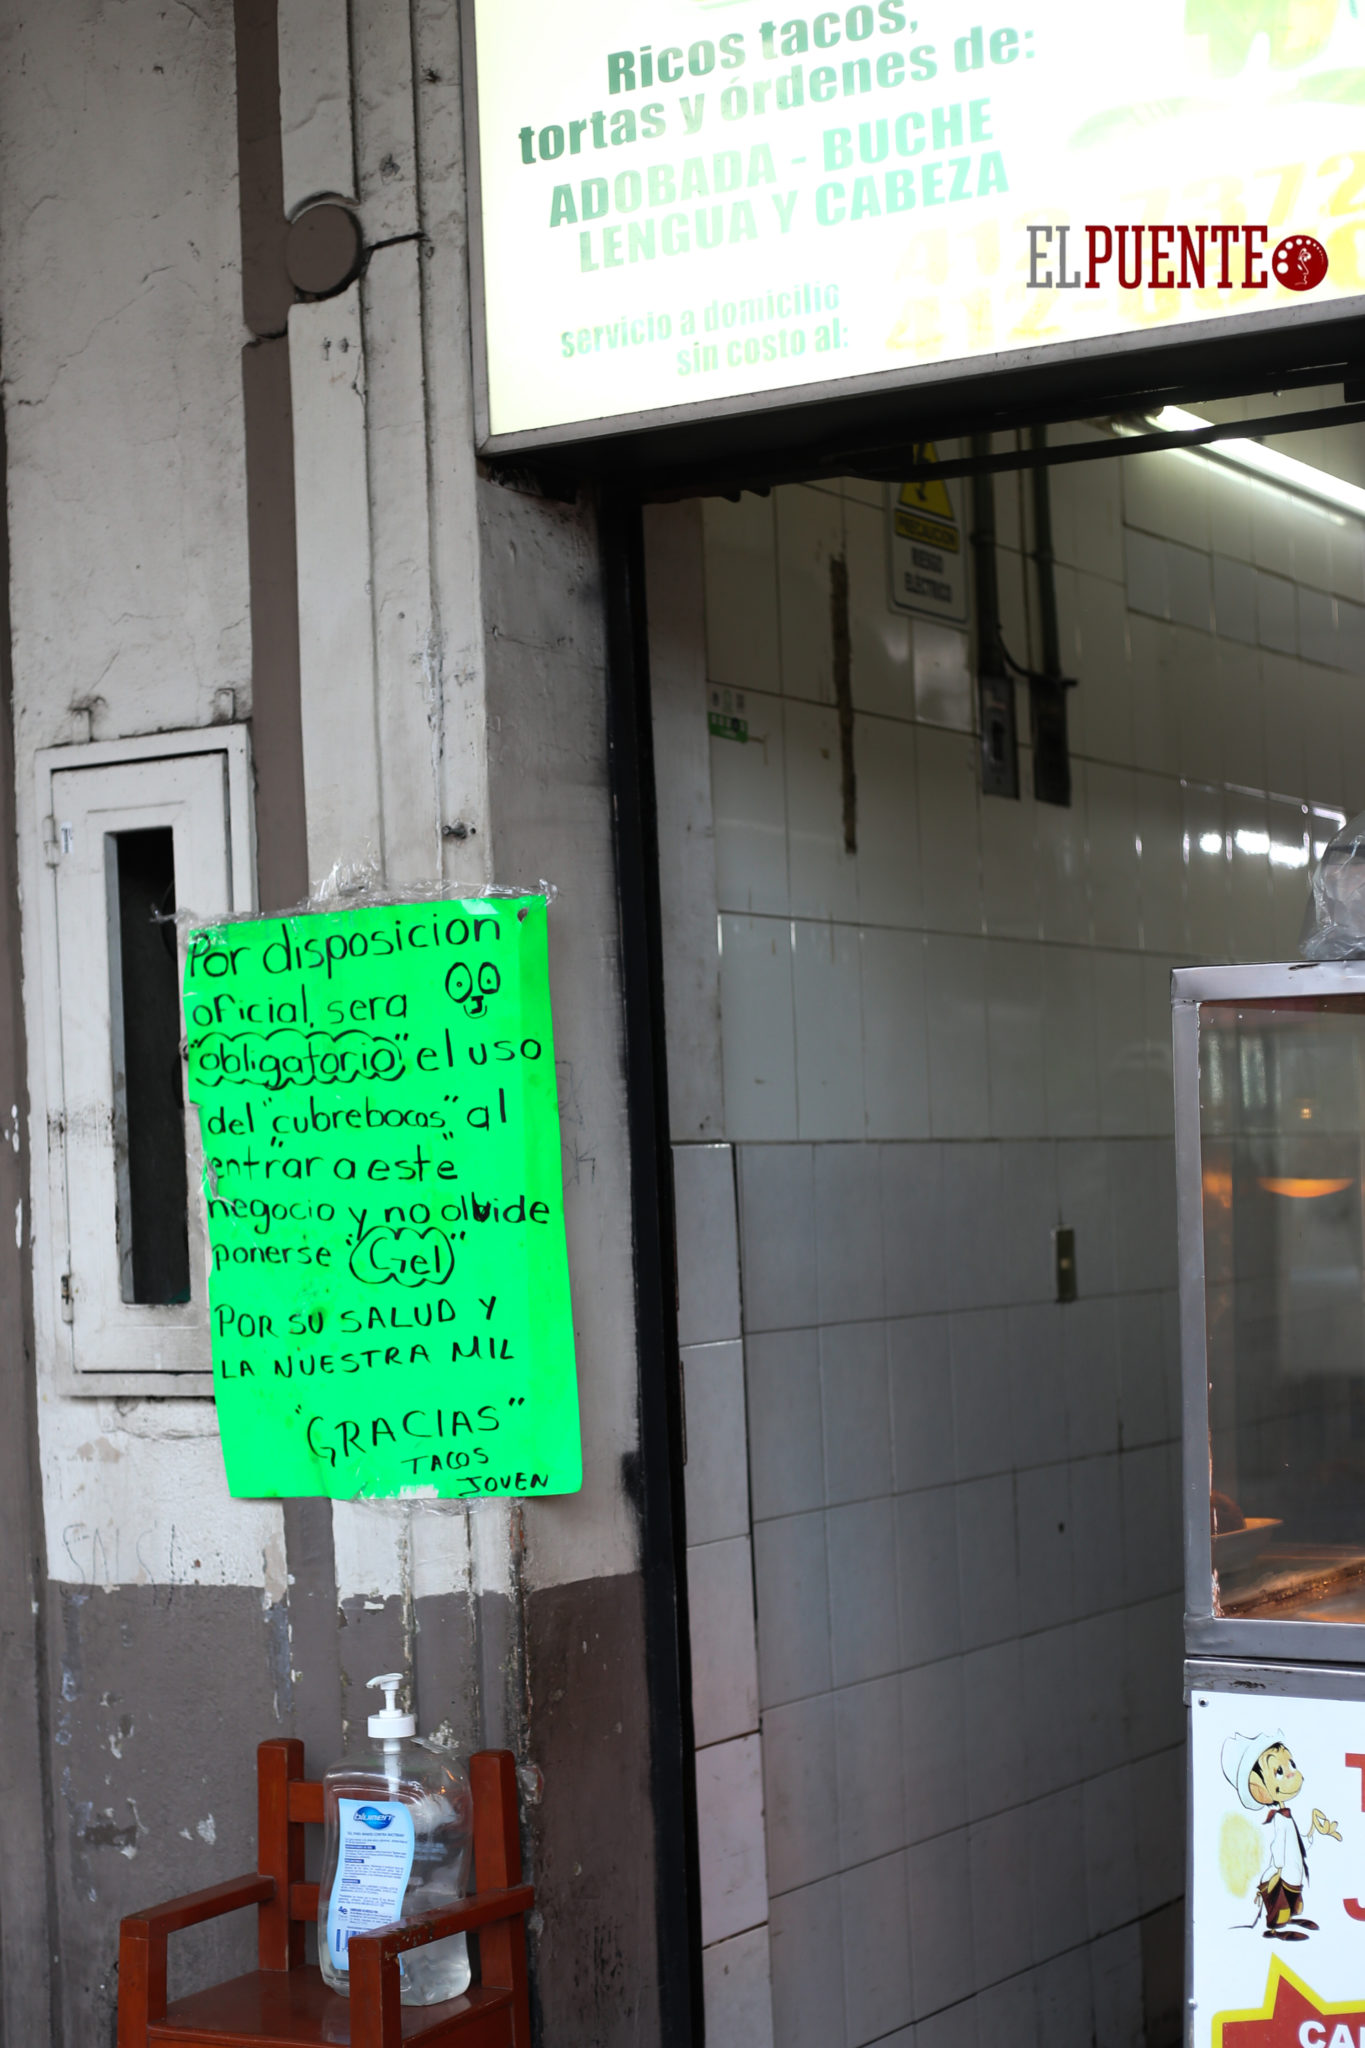 Ricos tacos,
tortas y órdenes de:
ADOBADA - BUCHE
LENGUA Y CABEZA
servicio a domicilio
sin costo al:
412-7372
412-
ELPUENTE
PRECAUCIÓN
RIESGO
ELÉCTRICO
Por disposicion
oficial, sera
"obligatorio" el uso
del "cubrebocas" al
entrar a este
negocio y no olvide
ponerse "Gel"
POR SU SALUD Y
LA NUESTRA MIL
"GRACIAS"
TACOS
JOVEN
blumen